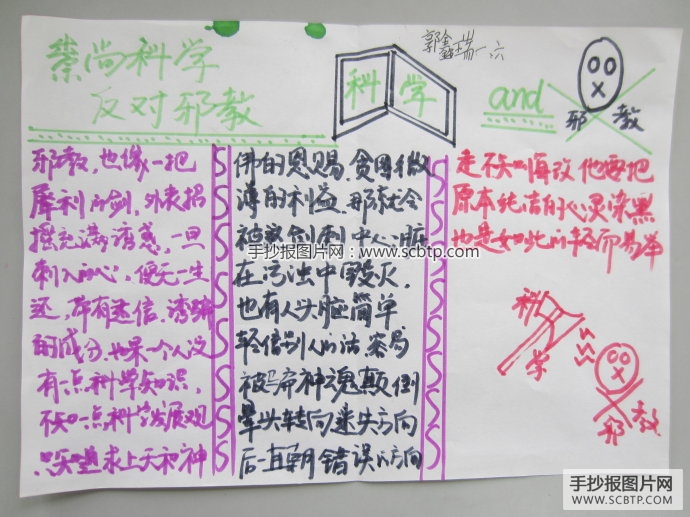 崇尚科学
反对邪教
科学
郭鑫瑞一六
and
邪教
邪教，也像一把
犀利的剑，外表招
摇充满诱惑，一旦
刺入的心，便无一生
还，带有迷信、诱骗
的成分，如果一个人没
有一点科学知识，
不知一点科学发展观
只知道求上天和神
佛的恩赐、贪图微
薄的利益，那就会
被这剑刺中心脏
在污浊中毁灭，
也有人头脑简单
轻信别人的话，容易
被骗神魂颠倒
晕头转向迷失方向
后一直朝错误的方向
走不知悔改他要把
原本纯洁的心灵染黑
也是如此的轻而易举
科学
邪教
手抄报图片网：www.scbtp.com
手抄报图片网
WWW.SCBTP.COM